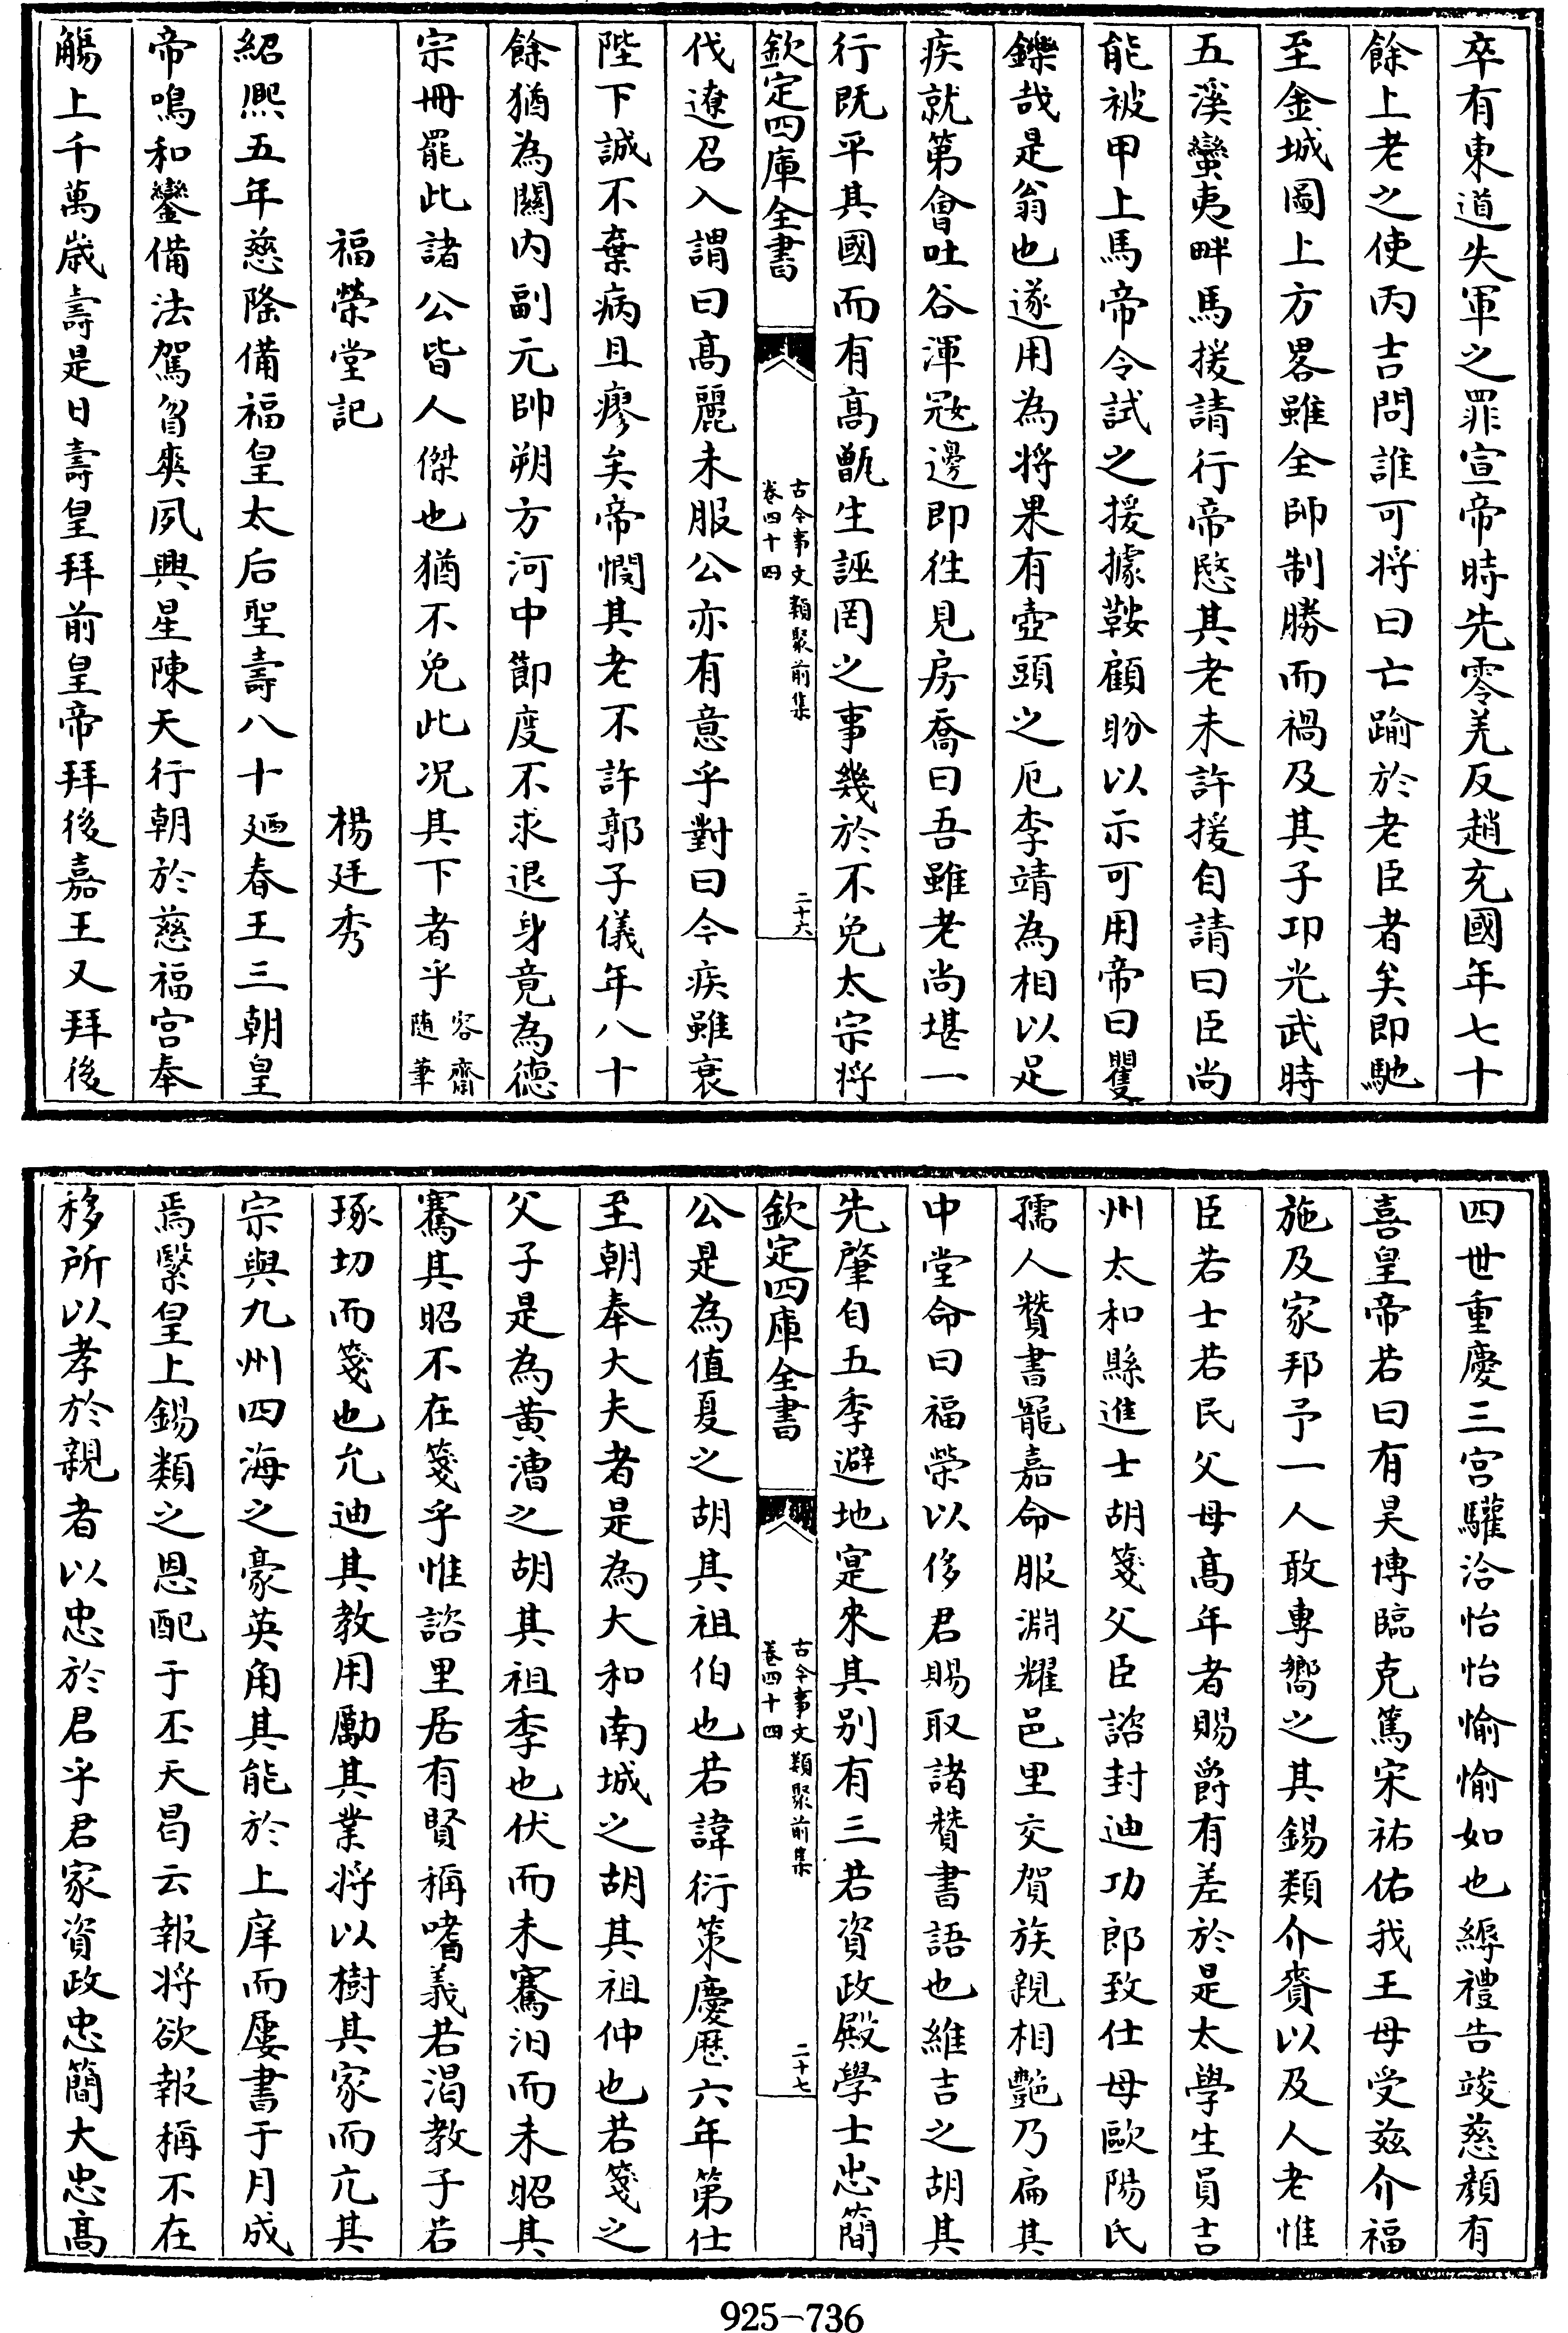 卒有東道失軍之罪宣帝時先零羌反趙充國年七十
餘上老之使丙吉問誰可將曰亡踰於老臣者矣即馳
至金城圖上方畧雖全師制勝而禍及其子卭光武時
五溪蠻夷畔馬援請行帝愍其老未許援自請曰臣尚
能被甲上馬帝令試之援據鞍顧盼以示可用帝曰矍
鑠哉是翁也遂用為將果有壺頭之厄李靖為相以足
疾就第會吐谷渾寇邊即徃見房喬曰吾雖老尚堪一
行既平其國而有高甑生誣罔之事幾於不免太宗將
欽定四庫全書
古今事文類聚前集
卷四十四
二十六
伐遼召入謂曰高麗未服公亦有意乎對曰今疾雖衰
陛下誠不棄病且瘳矣帝憫其老不許郭子儀年八十
餘猶為關内副元帥朔方河中節度不求退身竟為德
宗冊罷此諸公皆人傑也猶不免此况其下者乎容齋隨筆
福榮堂記 楊廷秀
紹熈五年慈隆備福皇太后聖壽八十廼春王三朝皇
帝鳴和鑾備法駕昒爽夙興星陳天行朝於慈福宮奉
觴上千萬歲壽是日壽皇拜前皇帝拜後嘉王又拜後
四世重慶三宮驩洽怡怡愉愉如也縟禮告竣慈顔有
喜皇帝若曰有昊博臨克篤宋祐佑我王母受兹介福
施及家邦予一人敢專嚮之其錫類介賚以及人老惟
臣若士若民父母高年者賜爵有差於是太學生員吉
州太和縣進士胡箋父臣諮封迪功郎致仕母歐陽氏
孺人贊書寵嘉命服淵耀邑里交賀族親相艷乃扁其
中堂命曰福榮以侈君賜取諸贊書語也維吉之胡其
先肇自五季避地寔來其别有三若資政殿學士忠簡
欽定四庫全書
古今事文類聚前集
卷四十四
二十七
公是為值夏之胡其祖伯也若諱衍策慶厯六年第仕
至朝奉大夫者是為大和南城之胡其祖仲也若箋之
父子是為黄漕之胡其祖季也伏而未騫汨而未昭其
騫其昭不在箋乎惟諮里居有賢稱嗜義若渴教子若
琢切而箋也允迪其教用勵其業將以樹其家而亢其
宗與九州四海之豪英角其能於上庠而屢書于月成
焉繄皇上錫類之恩配于丕天曷云報將欲報稱不在
移所以孝於親者以忠於君乎君家資政忠簡大忠高
925-736